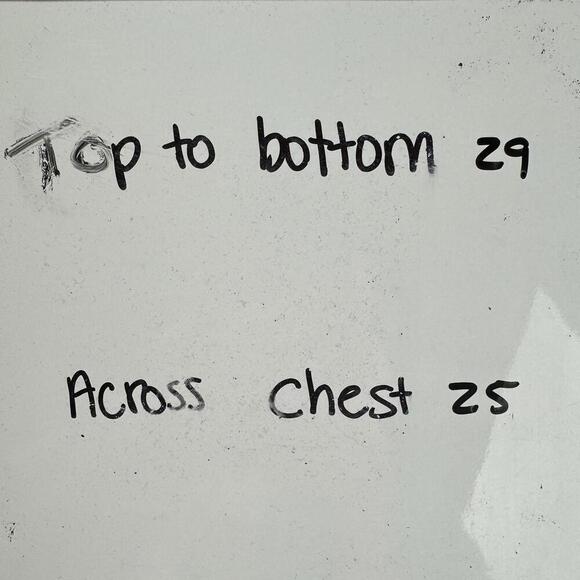 Top to bottom 29
Across Chest 25